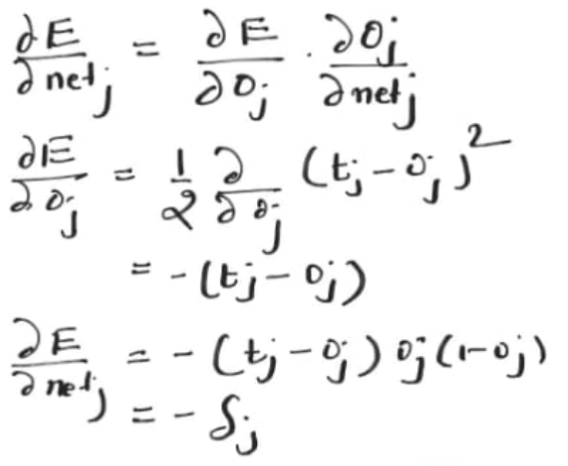 ∂E/∂net_j = ∂E/∂O_j · ∂O_j/∂net_j
∂E/∂o_j = 1/2 ∂/∂o_j (t_j - o_j)^2
= -(t_j - o_j)
∂E/∂net_j = -(t_j - o_j) o_j(1-o_j)
= -δ_j